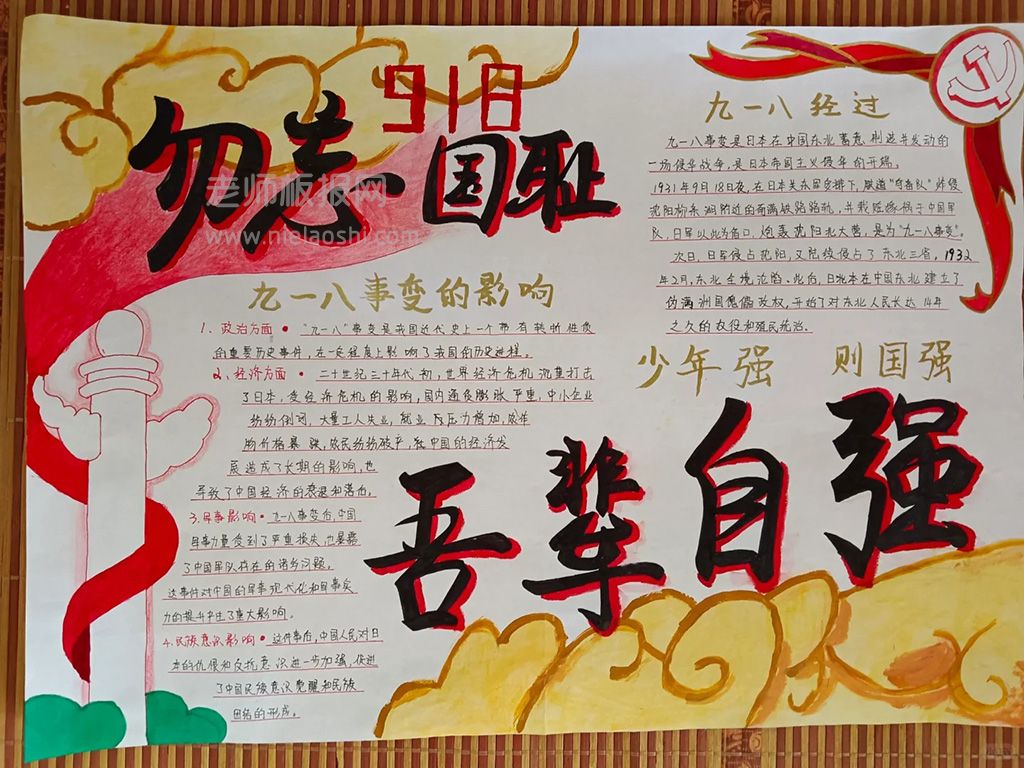 918
勿忘国耻
老师板报网
www.nielaoshi.com
九一八经过
九一八事变是日本在中国东北蓄意制造并发动的
一场侵华战争,是日本帝国主义侵华的开端。
1931年9月18日夜,在日本关东军安排下,铁道"守备队"炸毁
沈阳柳条湖附近的南满铁路路轨,并栽赃嫁祸于中国军
队,日军以此为借口,炮轰沈阳北大营,是为"九一八事变"。
次日,日军侵占沈阳,又陆续侵占了东北三省,1932
年2月,东北全境沦陷。此后,日本在中国东北建立了
伪满洲国傀儡政权,开始了对东北人民长达14年
之久的奴役和殖民统治。
九一八事变的影响
1、政治方面•"九一八"事变是我国近代史上一个带有转折性质
的重要历史事件,在一定程度上影响了我国的历史进程。
2、经济方面•二十世纪三十年代初,世界经济危机沉重打击
了日本,受经济危机的影响,国内通货膨胀严重,中小企业
纷纷倒闭,大量工人失业,就业压力增加,农作
物价格暴跌,农民纷纷破产,致中国的经济发
展造成了长期的影响,也
导致了中国经济的衰退和落后。
3.军事影响•九一八事变后,中国
军事力量受到了严重损失,也暴露
了中国军队存在的诸多问题。
这事件对中国的军事现代化和军事实
力的提升产生了重大影响。
4.民族意识影响•这件事后,中国人民对日
本的仇恨和反抗意识进一步加强,促进
了中国民族意识觉醒和民族
团结的形成。
少年强 则国强
吾辈自强